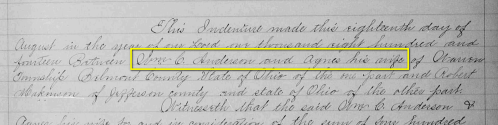 This Indenture made this eighteenth day of
August in the year of our Lord one thousand eight hundred and
fourteen Between Wm. C. Anderson and Agnes his wife of Warren
Township Belmont County State of Ohio of the one part and Robert
of Jefferson county and state of Ohio of the other part
Witnesseth that the said Wm. C. Anderson &
Agnes his wife for and in consideration of the sum of one hundred